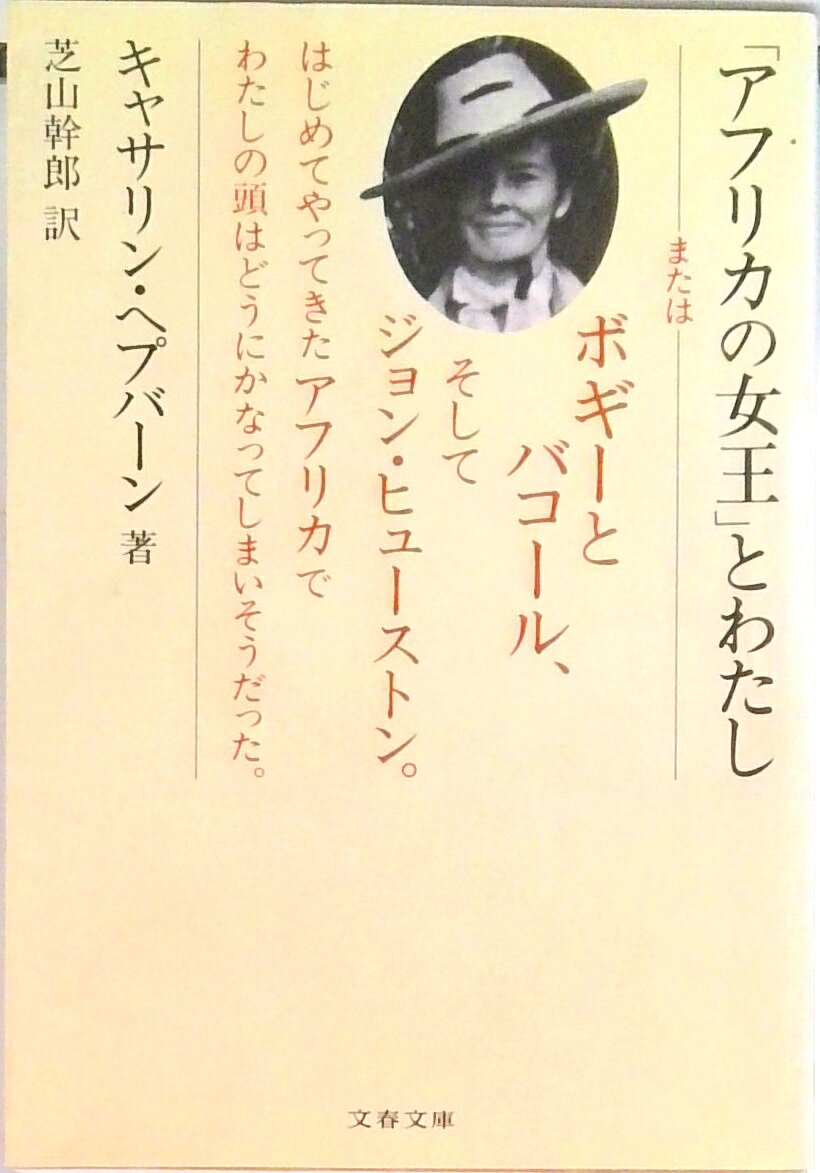 「アフリカの女王」とわたし
または
ボギーと
バコール、
そして
ジョン・ヒューストン。
はじめてやってきたアフリカで
わたしの頭はどうにかなってしまいそうだった。
キャサリン・ヘプバーン 著
芝山幹郎 訳
文春文庫